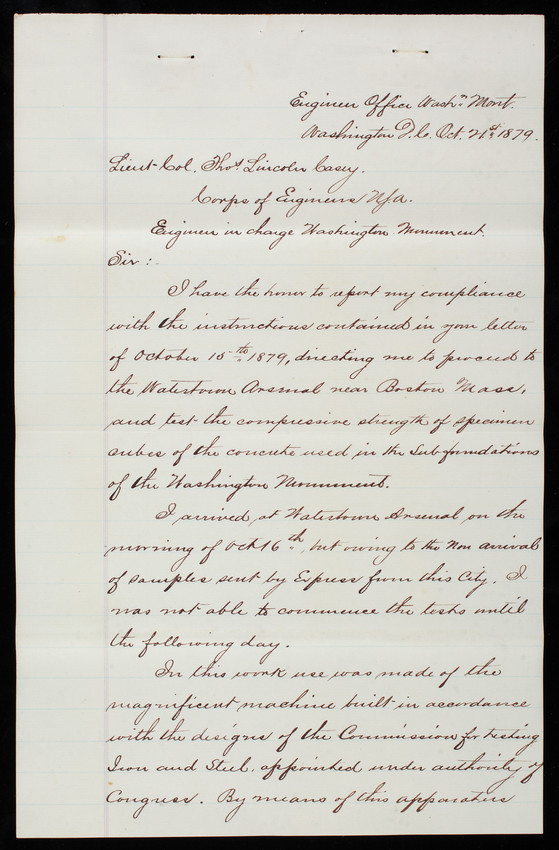 Engineer Office Wash.n Mont.
Washington D.C. Oct. 21st 1879.
Lieut Col. Thos Lincoln Casey.
Corps of Engineers U.S.A.
Engineer in charge Washington Monument.
Sir:
I have the honor to report my compliance
with the instructions contained in your letter
of October 15th 1879, directing me to proceed to
the Watertown Arsenal near Boston Mass,
and test the compressive strength of specimen
cubes of the concrete used in the Sub-foundations
of the Washington Monument.
I arrived at Watertown Arsenal on the
morning of Oct 16th, but owing to the non arrival
of samples sent by Express from this City, I
was not able to commence the tests until
the following day.
In this work use was made of the
magnificent machine built in accordance
with the designs of the Commission for testing
Iron and Steel, appointed under authority of
Congress. By means of this apparatus